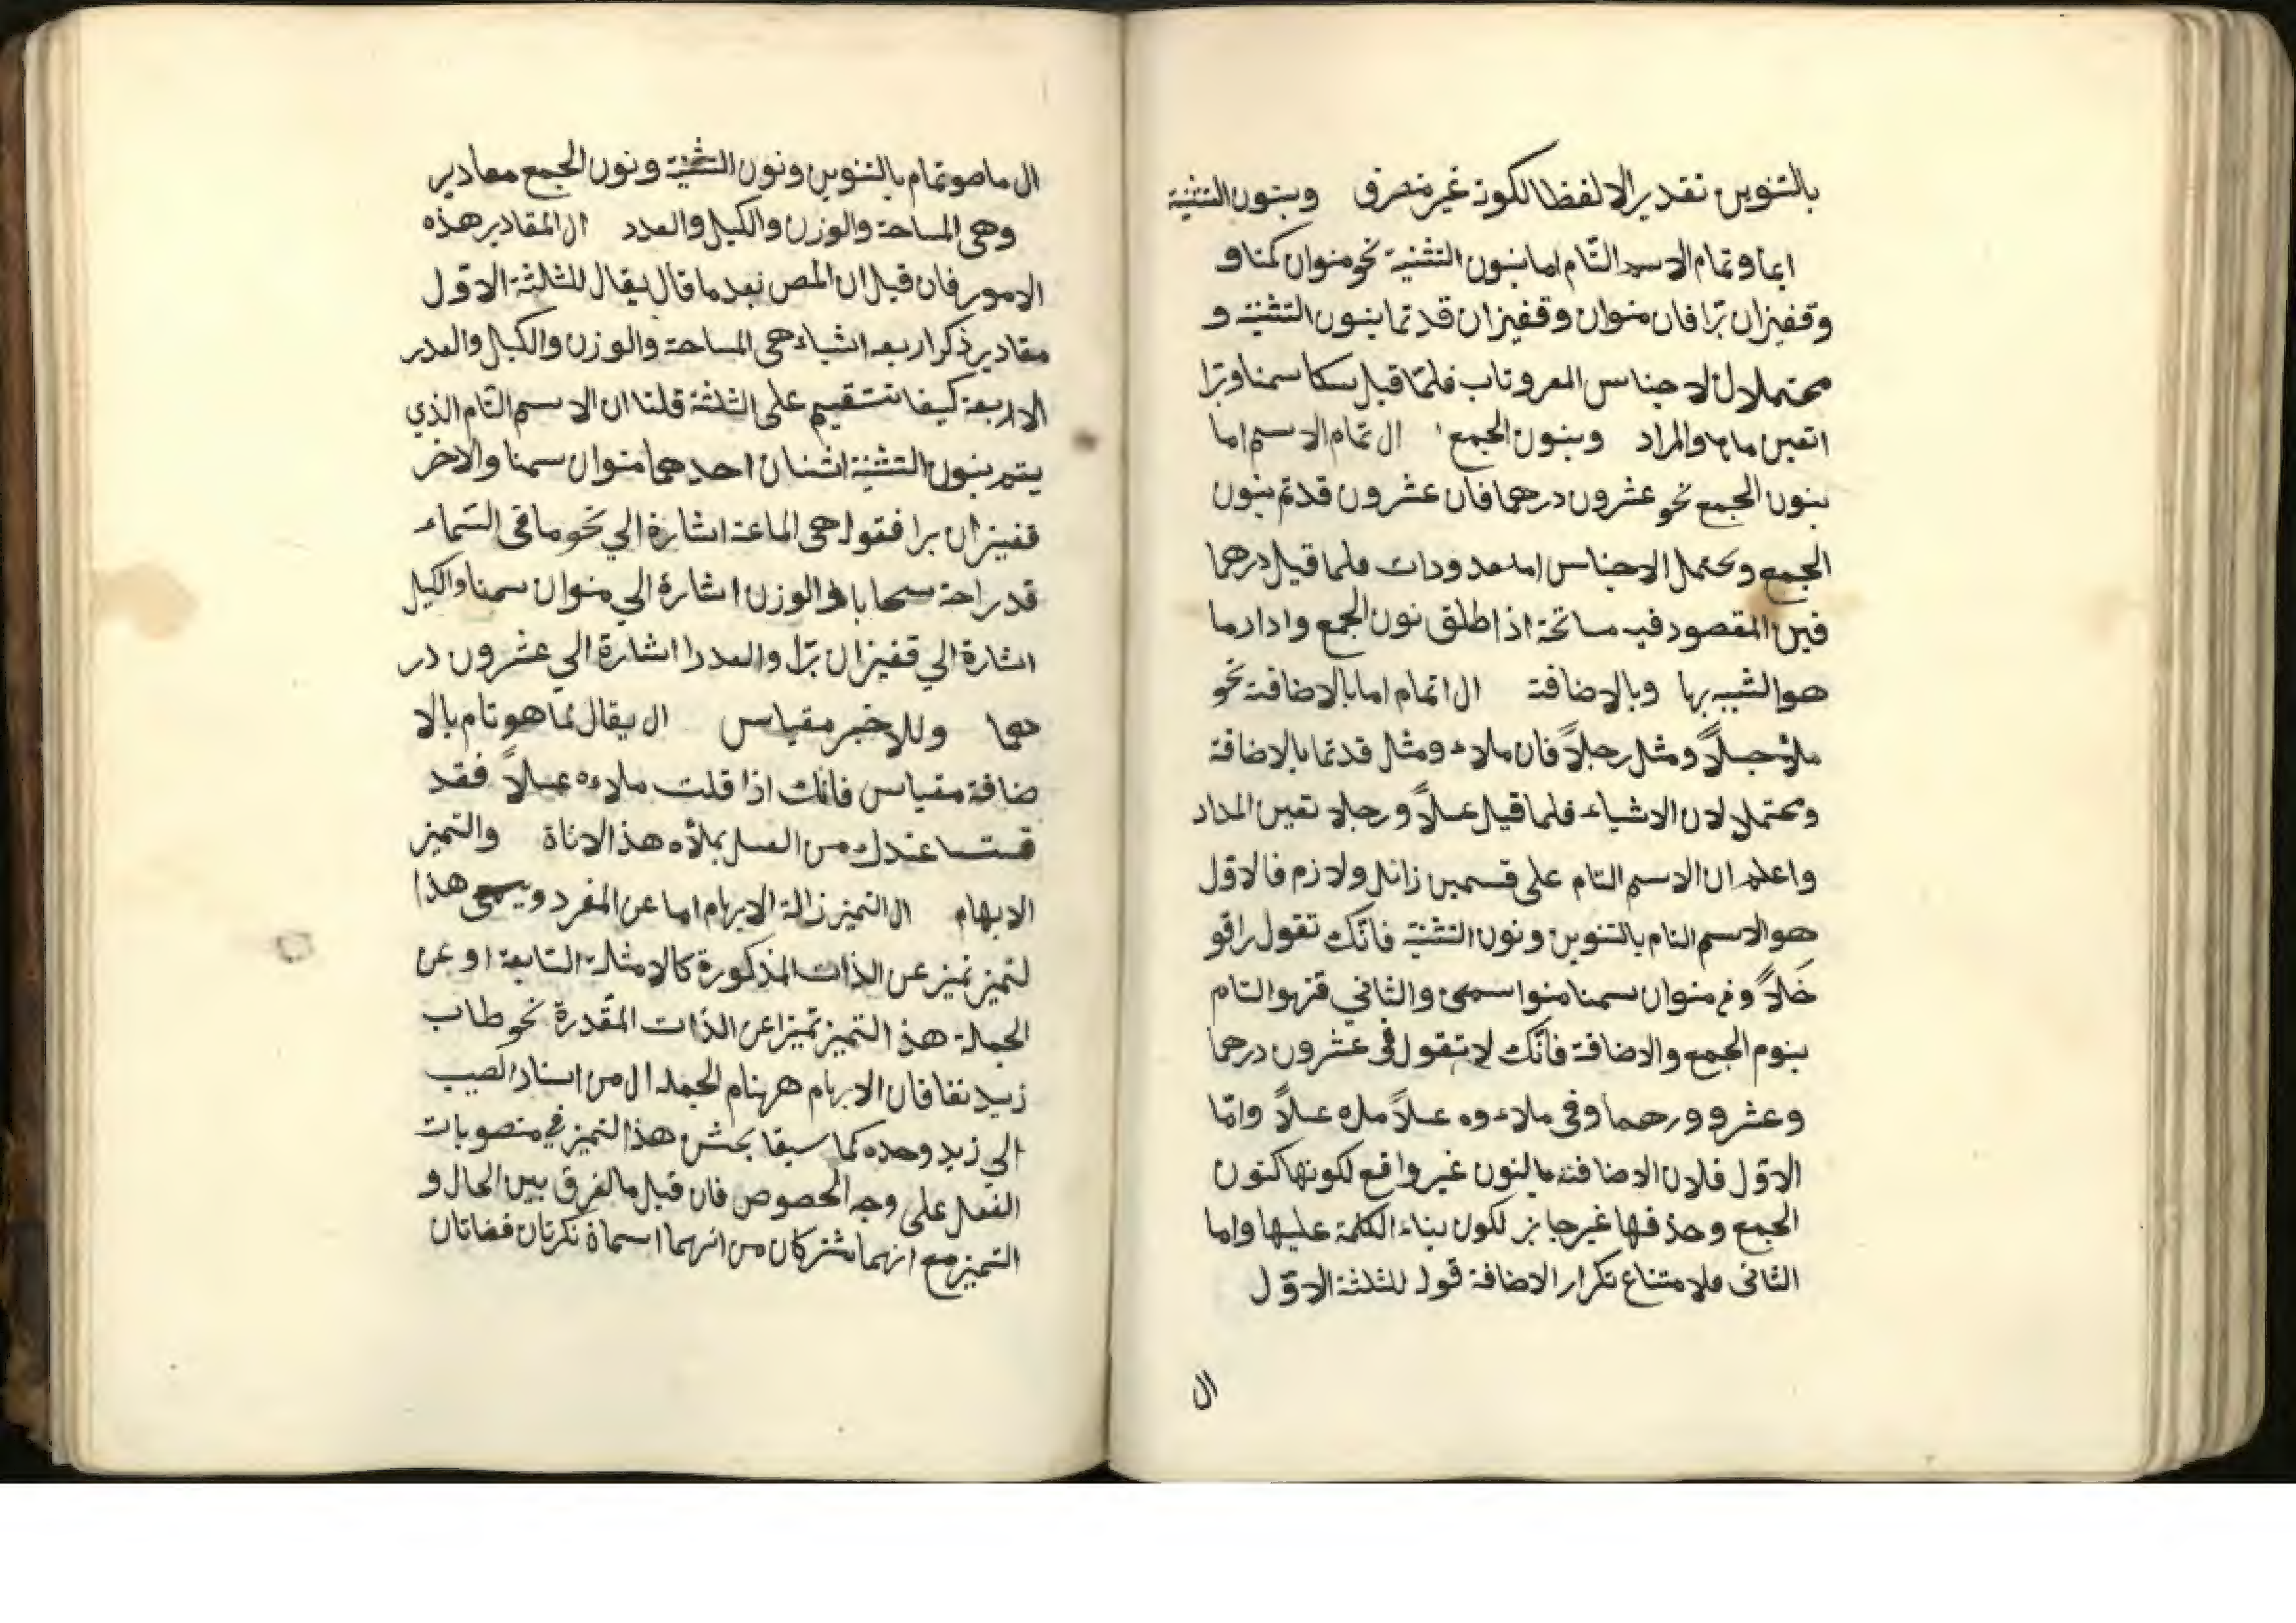 بالتنوين تقديرا لا لفظا لكونه غير منصرف وبنون التثنية
ايما وتمام الاسم التام اما بنون التثنية نحو منوان سمنا و
وقفيزان برّا فان منوان وقفيزان قد تما بنون التثنية و
محتملان لاجناس فلمّا قيل سمنا وبرّا
اتعين والمراد وبنون الجمع ال تمام الاسم اما
بنون الجمع نحو عشرون درهما فان عشرون قد تم بنون
الجمع ويحتمل الاجناس المعدودات فلما قيل درهما
المقصود فيه اذا اطلق نون الجمع واراد ما
هو الشبيه بها وبالاضافة ال اتمام اما بالاضافة نحو
عسلاً ومثل رجلاً فان ملاء ومثل قد تما بالاضافة
ومحتمل لان الاشياء فلما قيل عسلاً ورجلا تعين المداد
واعلم ان الاسم التام على قسمين زائل ولازم فالاول
هو الاسم التام بالتنوين ونون التثنية فانّك تقول راقو
خَلاً منوان سمنا منوا سمن والثاني التام
بنوم الجمع والاضافة فانّك لا تقول فى عشرون درهما
وعشرو ورهما وفى ملاء وه عسلاً ملاه عسلاً وامّا
الاوّل فلان الاضافة بالنون غير واقع لكونها كنون
الجمع وحذفها غير جايز لكون بناء الكلمة عليها واما
الثانى فلامتناع تكرار الاضافة قوله للثلثة الاوّل
ال
ال ما هو تمام بالتنوين ونون التثنية ونون الجمع مقادير
وهى المساحة والوزن والكيل والعدد ال المقادير هذه
الامور فان قيل ان المص بعد ما قال يقال للثلثة الاوّل
مقادير ذكر اربعه اشياء هى المساحة والوزن والكيل والعدر
الاربعة كيف تستقيم على الثلثة قلنا ان الاسم التام الذي
يتم بنون التثنية اثنان احدهما منوان سمنا والاخر
قفيزان برا فقوله هى اشارة الي نحو ما فى السّماء
قدر راحة سحابا والوزن اشارة الي منوان سمنا والكيل
اشارة الي قفيزان برّا والعدد اشارة الي عشرون در
هما وللاخير مقياس ال يقال لما هو تام بالا
ضافة مقياس فانّك اذا قلت ملاءه عسلاً فقد
قست ما عندك من العسل بملأه هذا الاناة والتميز
الابهام ال التميز زالة الابهام اما عن المفرد ويسمى هذا
لتميز تميز عن الذات المذكورة كالامثلة السّابعة او عن
الجملة هذ التميز تميزا عن الذات المقّدرة نحو طاب
زيد نفسا فان الابهام ههنام الجمله ال من اسناد
الي زيد وحده كما سبق بحث هذا التميز في منصوبات
الفعل على وجه الخصوص فان قيل ما الفرق بين الحال و
التميز مع انهما مشتركان من انهما اسماة نكرتان فضلتان